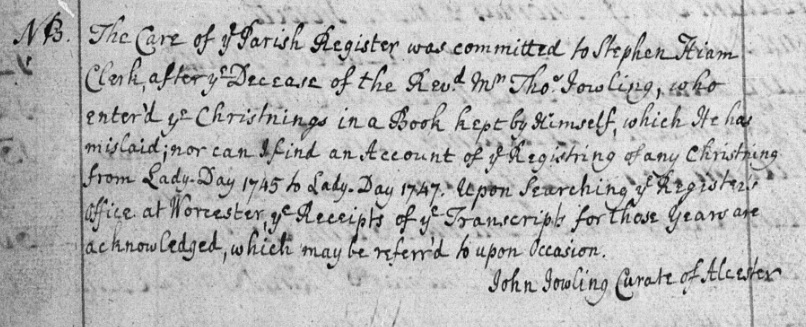 NB. The Care of yͤ Parish Register was committed to Stephen Hiam
Clerk, after yͤ Decease of the Revᵈ. Mʳ Thoˢ Jowling, who
enter'd yͤ Christnings in a Book kept by Himself, which He has
mislaid; nor can I find an Account of yͤ Registring of any Christning
from Lady-Day 1745 to Lady-Day 1747. Upon Searching yͤ Register's
Office at Worcester, yͤ Receipts of yͤ Transcripts for those Years are
acknowledged, which may be referr'd to upon Occasion.
John Jowling Curate of Alcester